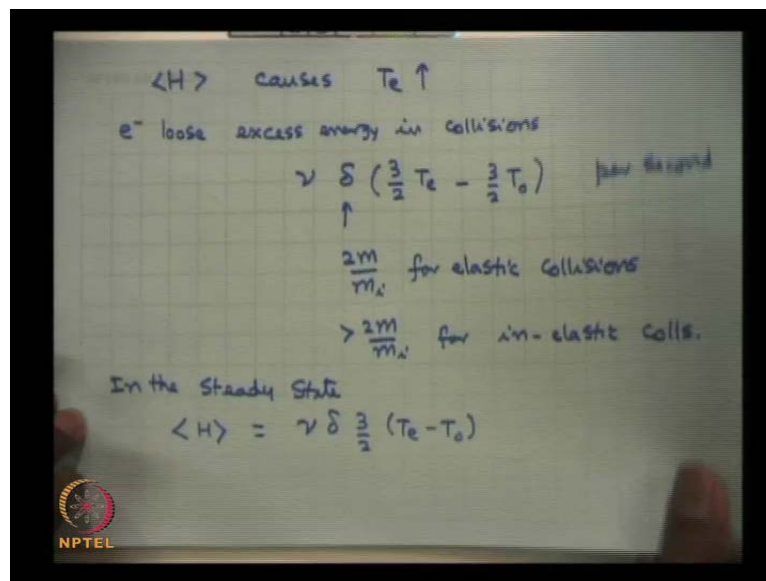 <H> causes Te ↑
e⁻ loose excess energy in collisions
ν δ (3/2 Te - 3/2 T₀) per second
↑
2m/mᵢ for elastic collisions
> 2m/mᵢ for in-elastic colls.
In the steady state
<H> = ν δ 3/2 (Te - T₀)
NPTEL